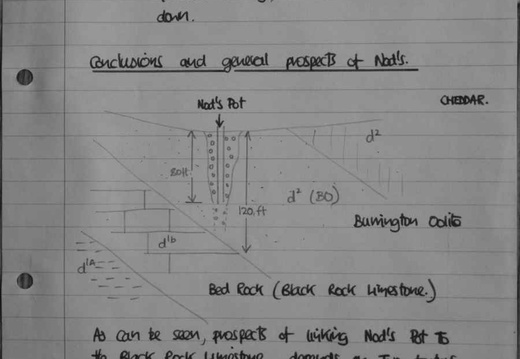 down.
Conclusions and general prospects of Nod's.
Nod's Pot
CHEDDAR.
d²
80ft
d² (BO)
120.ft
Burrington Oolite
d1b
d1A
Bed Rock (Black Rock Limestone.)
As can be seen, prospects of linking Nod's Pot to
Black Rock Limestone